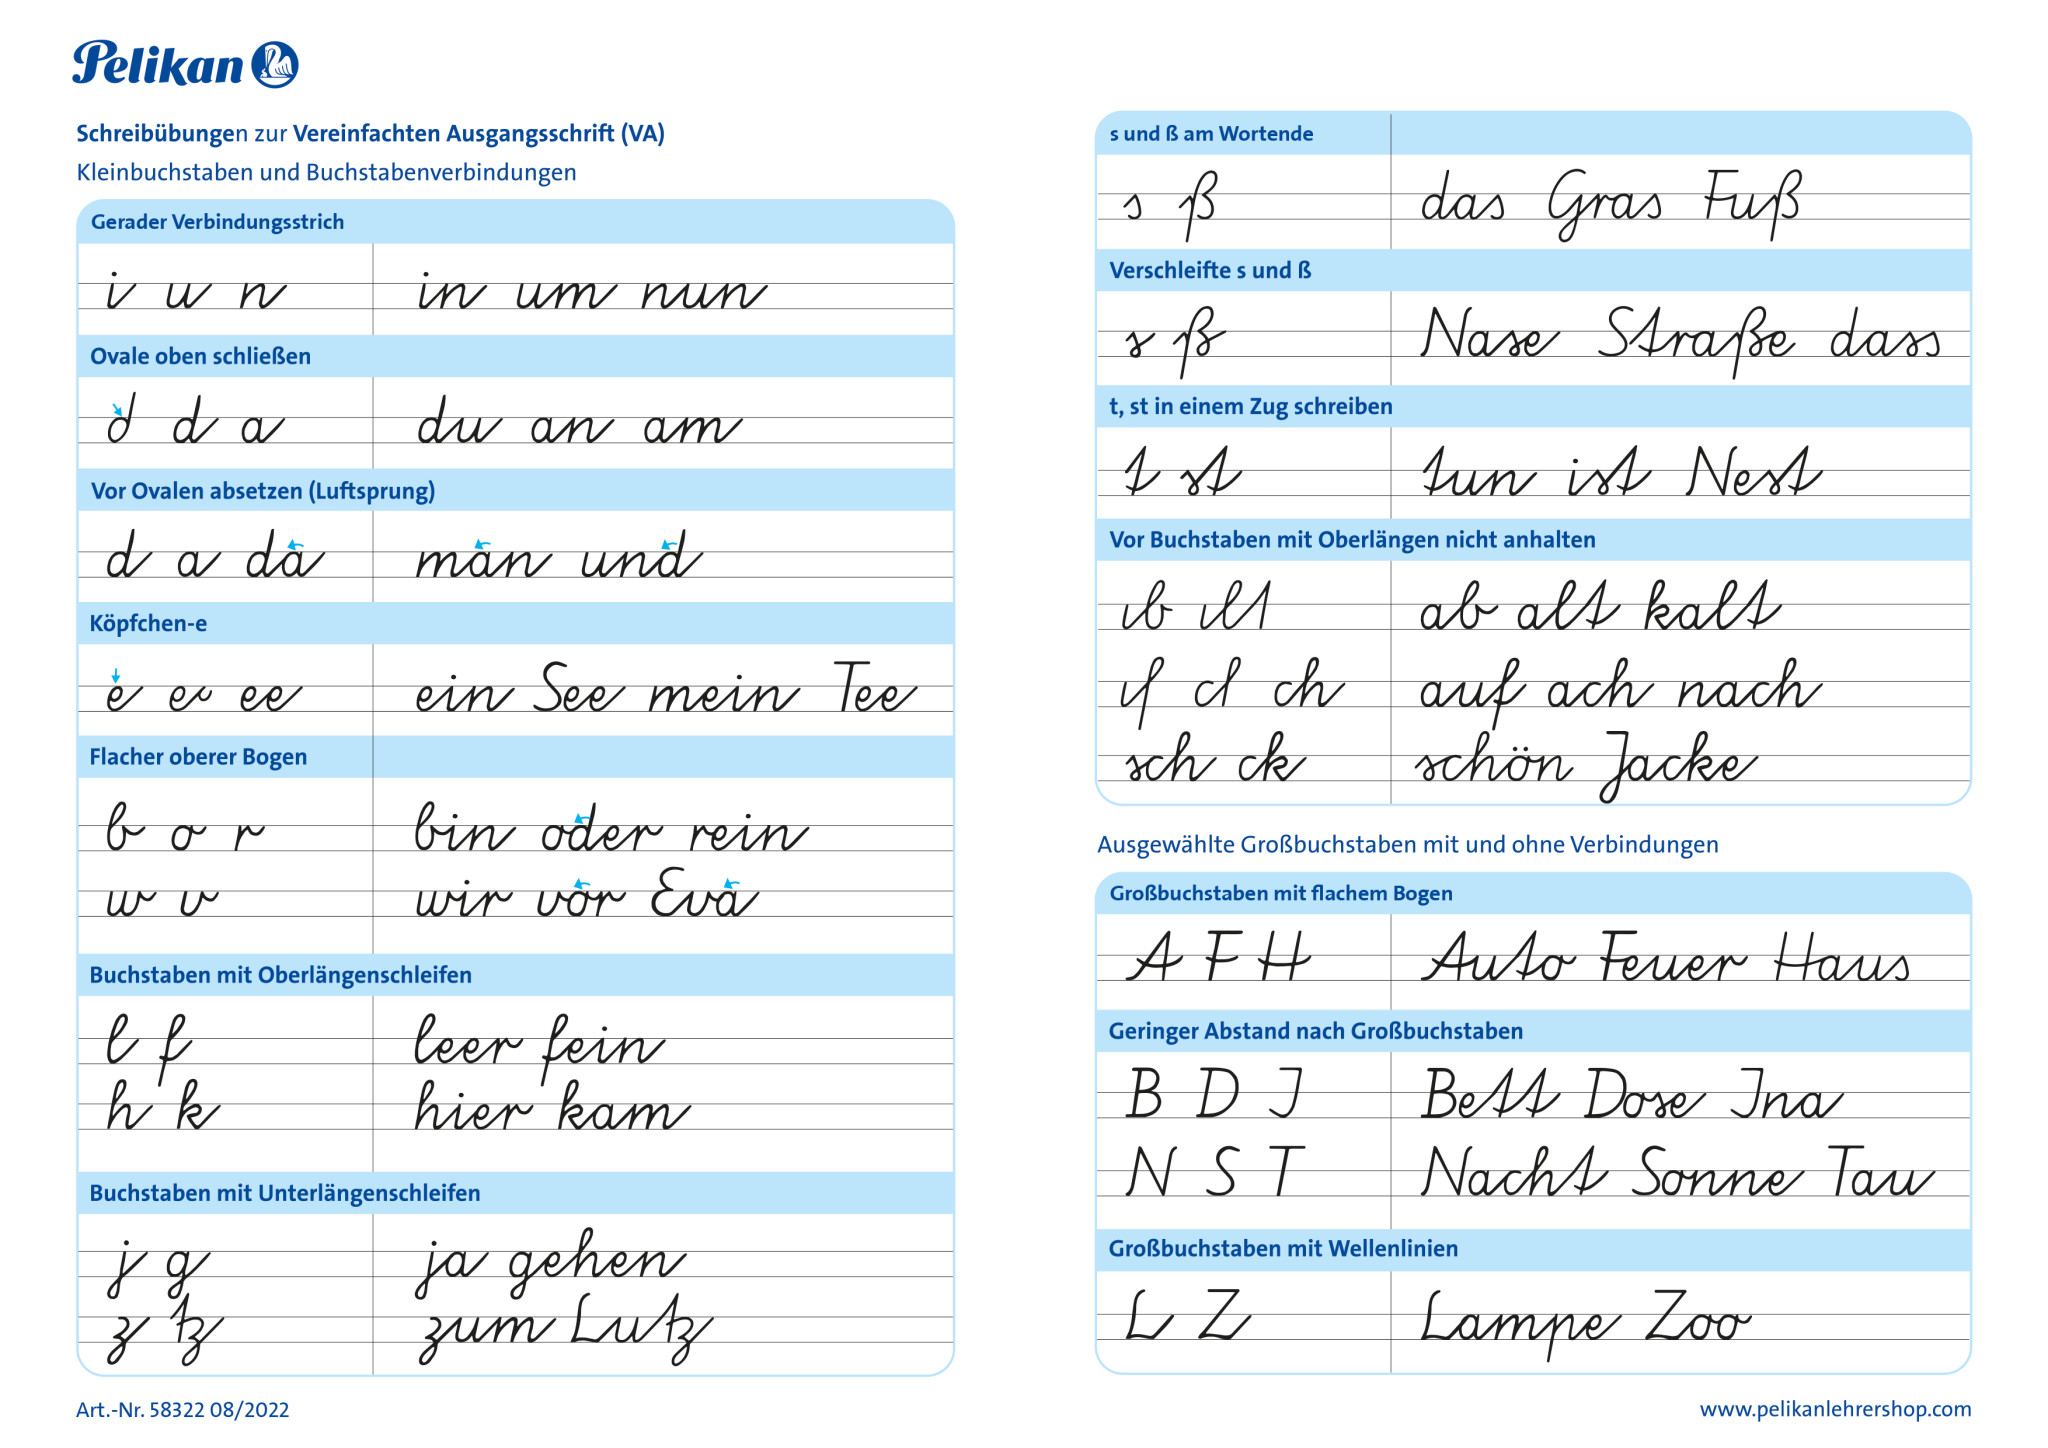 Pelikan
Schreibübungen zur Vereinfachten Ausgangsschrift (VA)
Kleinbuchstaben und Buchstabenverbindungen
Gerader Verbindungsstrich
i u n in um nun
Ovale oben schließen
d d a du an am
Vor Ovalen absetzen (Luftsprung)
d a da man und
Köpfchen-e
e ee ein See mein Tee
Flacher oberer Bogen
b o r bin oder rein
w v wir vor Eva
Buchstaben mit Oberlängenschleifen
l f leer fein
h k hier kam
Buchstaben mit Unterlängenschleifen
j g ja gehen
z tz zum Lutz
Art.-Nr. 58322 08/2022
s und ß am Wortende
s ß das Gras Fuß
Verschleifte s und ß
s ß Nase Straße dass
t, st in einem Zug schreiben
t st tun ist Nest
Vor Buchstaben mit Oberlängen nicht anhalten
ab alt kalt
ch auf ach nach
sch ck schön Jacke
Ausgewählte Großbuchstaben mit und ohne Verbindungen
Großbuchstaben mit flachem Bogen
A F H Auto Feuer Haus
Geringer Abstand nach Großbuchstaben
B D I Bett Dose Ina
N S T Nacht Sonne Tau
Großbuchstaben mit Wellenlinien
L Z Lampe Zoo
www.pelikanlehrershop.com